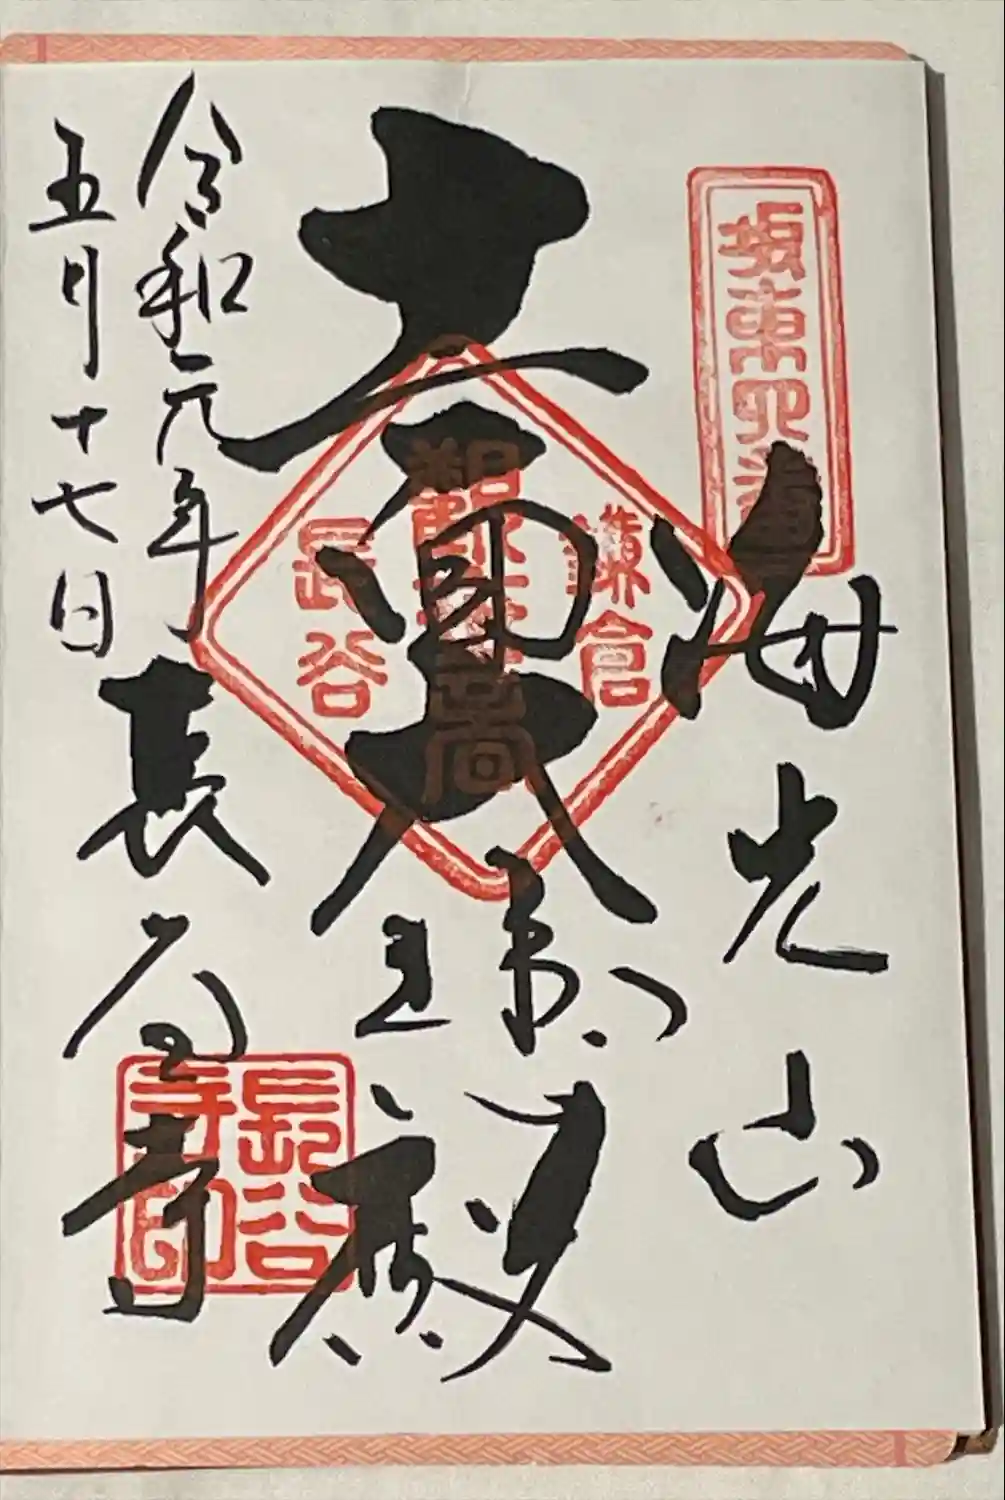 坂東四番
海光山
十一面大悲殿
鎌倉
長谷
令和元年
五月十七日
長谷寺
長谷寺印